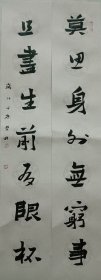 莫思身外無窮事
且盡生前有限杯